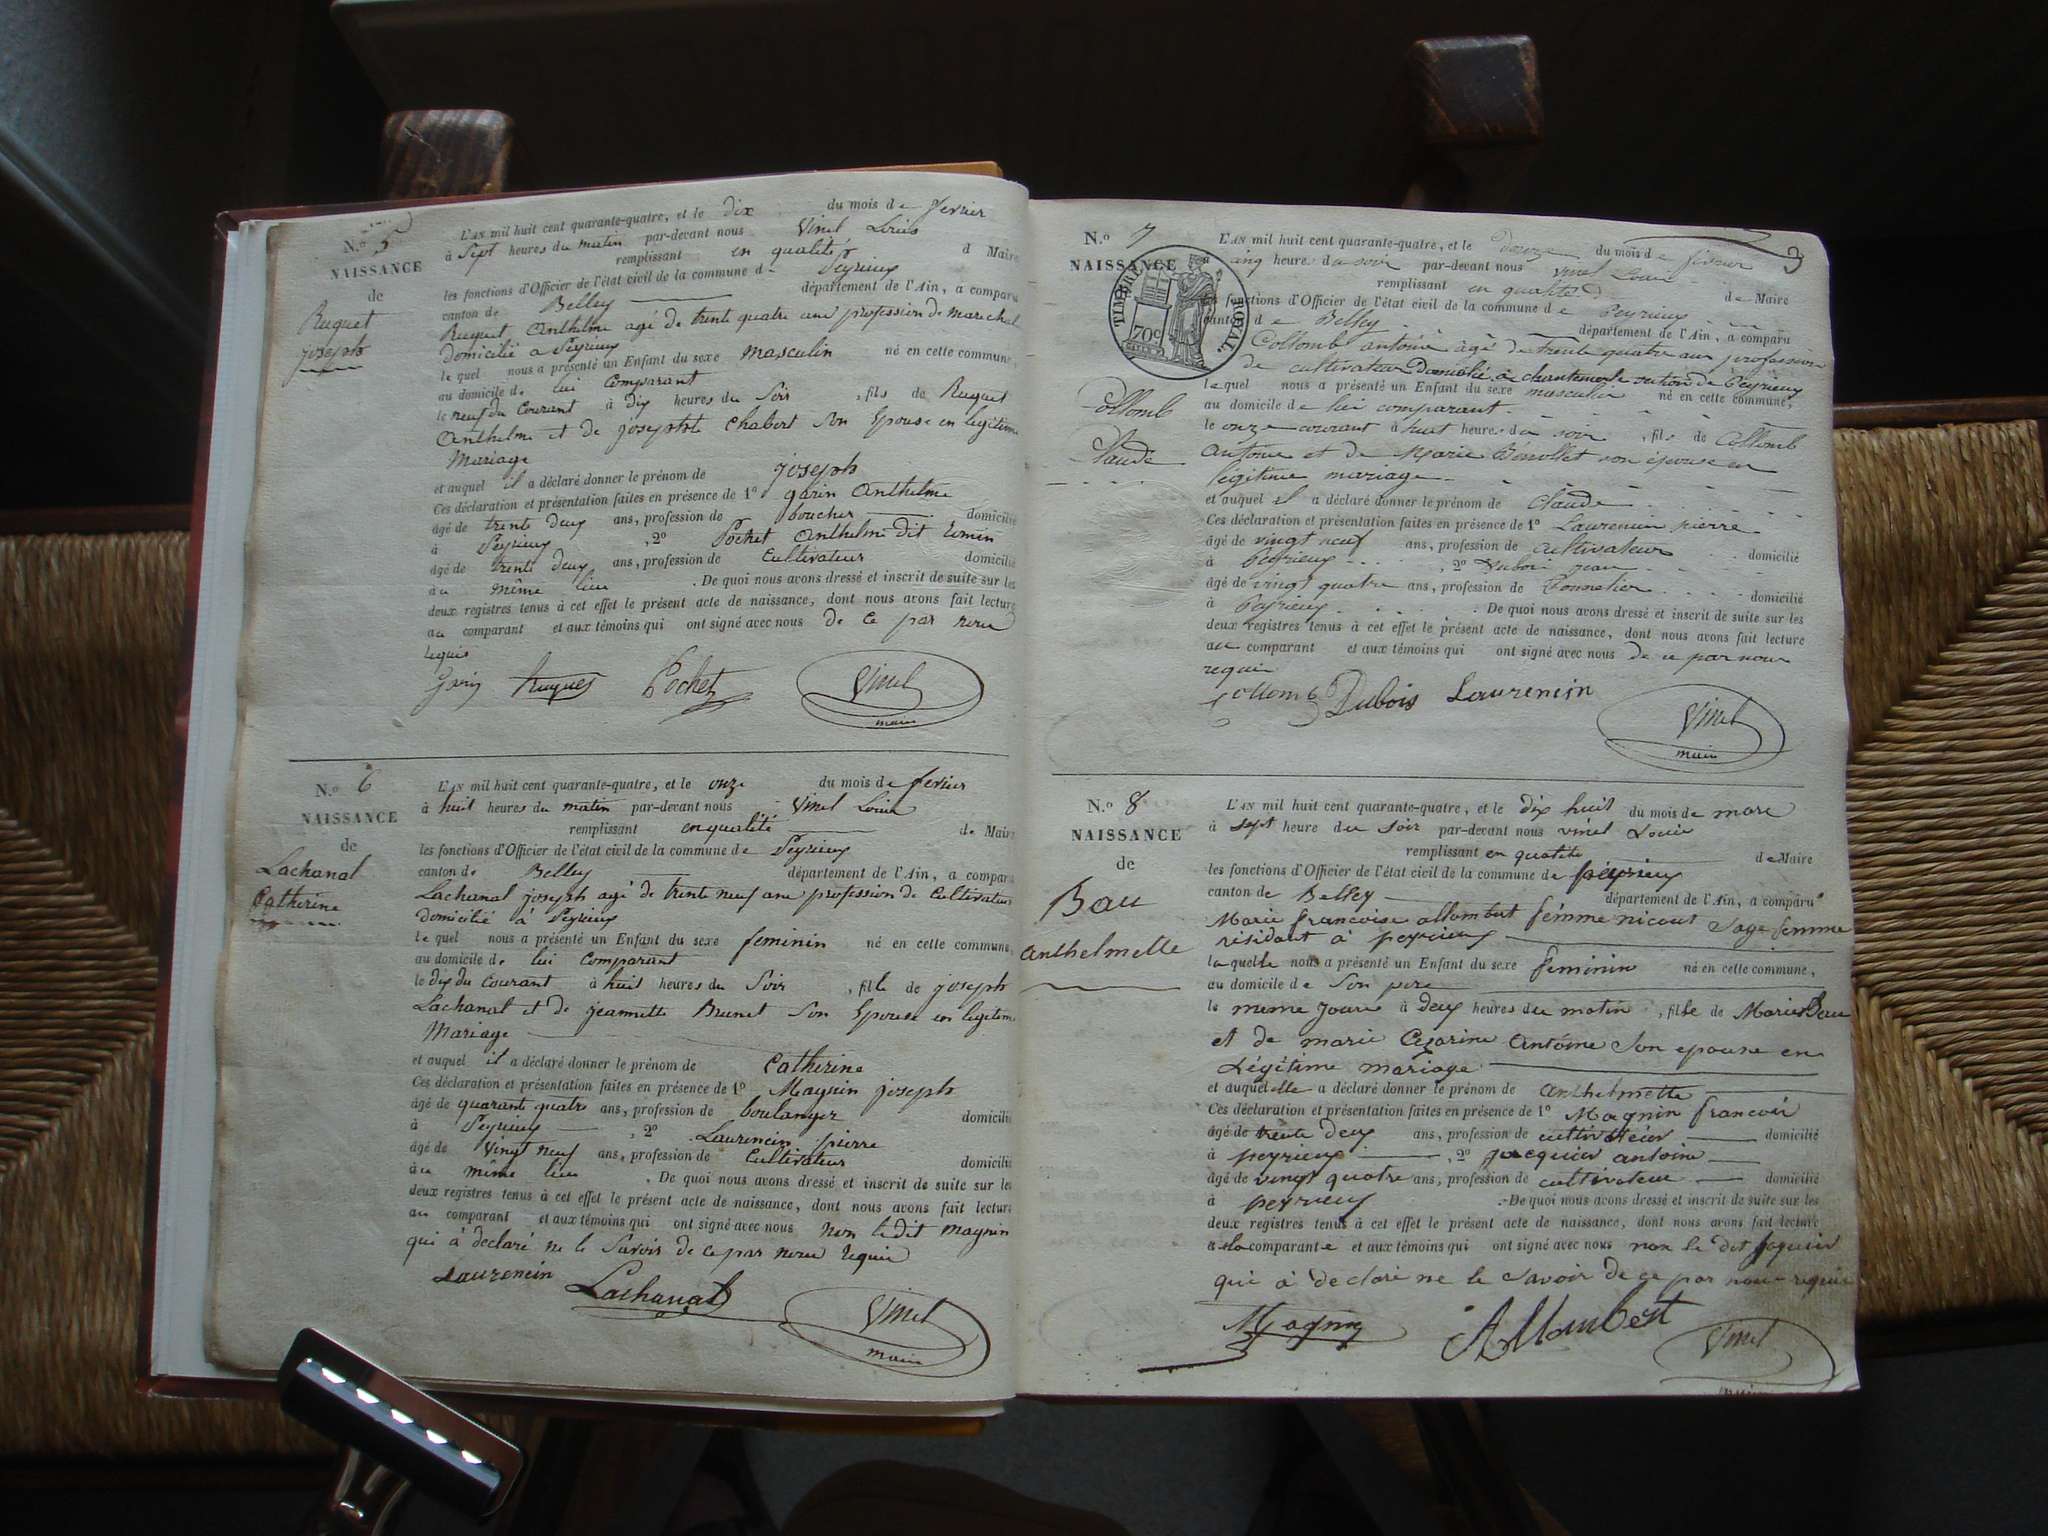 N.º 5
NAISSANCE
de
Ruquet
joseph
L'AN mil huit cent quarante-quatre, et le dix du mois de fevrier
à Sept heures du matin par-devant nous Vinel Louis
remplissant en qualité d Maire
les fonctions d'Officier de l'état civil de la commune d Peyrieux
canton de Belley département de l'Ain, a comparu
Ruquet Anthelme agé de trente quatre ans profession de marechal
domicilié a Peyrieux
le quel nous a présenté un Enfant du sexe masculin né en cette commune,
au domicile de lui Comparant
le neuf du Courant à dix heures du Soir , fils de Ruquet
Anthelme et de josephte Chabert Son Epouse en legitime
Mariage
et auquel il a déclaré donner le prénom de joseph
Ces déclaration et présentation faites en présence de 1º garin Anthelme
âgé de trente deux ans, profession de boucher domicilié
à Peyrieux , 2º Pochet Anthelme dit
âgé de trente deux ans, profession de Cultivateur domicilié
au même lieu . De quoi nous avons dressé et inscrit de suite sur les
deux registres tenus à cet effet le présent acte de naissance, dont nous avons fait lecture
au comparant et aux témoins qui ont signé avec nous de Ce par nous
requis
Garin Ruquet Pochet Vinel
maire
N.º 6
NAISSANCE
de
Lachanal
Catherine
L'AN mil huit cent quarante-quatre, et le onze du mois de fevrier
à huit heures du matin par-devant nous Vinel Louis
remplissant en qualité de Maire
les fonctions d'Officier de l'état civil de la commune de Peyrieux
canton de Belley département de l'Ain, a comparu
Lachanal joseph agé de trente neuf ans profession de Cultivateur
domicilié à Peyrieux
le quel nous a présenté un Enfant du sexe feminin né en cette commune,
au domicile de lui Comparant
le dix du courant à huit heures du Soir , fille de joseph
Lachanal et de jeannette Brunet Son Epouse en legitime
Mariage
et auquel il a déclaré donner le prénom de Catherine
Ces déclaration et présentation faites en présence de 1º Magnin joseph
âgé de quarante quatre ans, profession de boulanger domicilié
à Peyrieux , 2º Laurencin pierre
âgé de vingt neuf ans, profession de Cultivateur domicilié
au même lieu . De quoi nous avons dressé et inscrit de suite sur les
deux registres tenus à cet effet le présent acte de naissance, dont nous avons fait lecture
au comparant et aux témoins qui ont signé avec nous non le dit magnin
qui à declaré ne le Savoir de ce par nous requis
Laurencin Lachanal Vinel
maire
3
N.º 7
NAISSANCE
TIMBRE ROYAL
70c
Collomb
Claude
L'AN mil huit cent quarante-quatre, et le douze du mois de fevrier
cinq heures du soir par-devant nous Vinel Louis
remplissant en qualité de Maire
les fonctions d'Officier de l'état civil de la commune de Peyrieux
canton de Belley département de l'Ain, a comparu
Collomb antoine âgé de trente quatre ans profession
de cultivateur Domicilié à chantemerle section de Peyrieux
lequel nous a présenté un Enfant du sexe masculin né en cette commune,
au domicile de lui comparant
le onze courant à huit heures du soir , fils de Collomb
antoine et de Marie Benollet son épouse en
légitime mariage
et auquel il a déclaré donner le prénom de Claude
Ces déclaration et présentation faites en présence de 1º Laurencin pierre
âgé de vingt neuf ans, profession de cultivateur domicilié
à Peyrieux , 2º Dubois jean
âgé de vingt quatre ans, profession de Tonnelier domicilié
à Peyrieux . De quoi nous avons dressé et inscrit de suite sur les
deux registres tenus à cet effet le présent acte de naissance, dont nous avons fait lecture
au comparant et aux témoins qui ont signé avec nous de ce par nous
requis
Collomb Dubois Laurencin
Vinel
maire
N.º 8
NAISSANCE
de
Bau
anthelmette
L'AN mil huit cent quarante-quatre, et le dix huit du mois de mars
à sept heure du soir par-devant nous vinel Louis
remplissant en qualité de Maire
les fonctions d'Officier de l'état civil de la commune de peyrieux
canton de Belley département de l'Ain, a comparu
Marie francoise allombert femme nicout Sage femme
résidant à peyrieux
la quelle nous a présenté un Enfant du sexe feminin né en cette commune,
au domicile de Son pere
le meme jour à deux heures du matin , fille de Marius Bau
et de marie Cezarine Antoine Son epouse en
Légitime mariage
et auquel elle a déclaré donner le prénom de anthelmette
Ces déclaration et présentation faites en présence de 1º Magnin francois
âgé de trente deux ans, profession de cultivateur domicilié
à peyrieux , 2º jacquier antoine
âgé de vingt quatre ans, profession de cultivateur domicilié
à peyrieux . De quoi nous avons dressé et inscrit de suite sur les
deux registres tenus à cet effet le présent acte de naissance, dont nous avons fait lecture
a la comparante et aux témoins qui ont signé avec nous non le dit jaquier
qui à declaré ne le Savoir de ce par nous requis
Magnin Allombert Vinel
maire